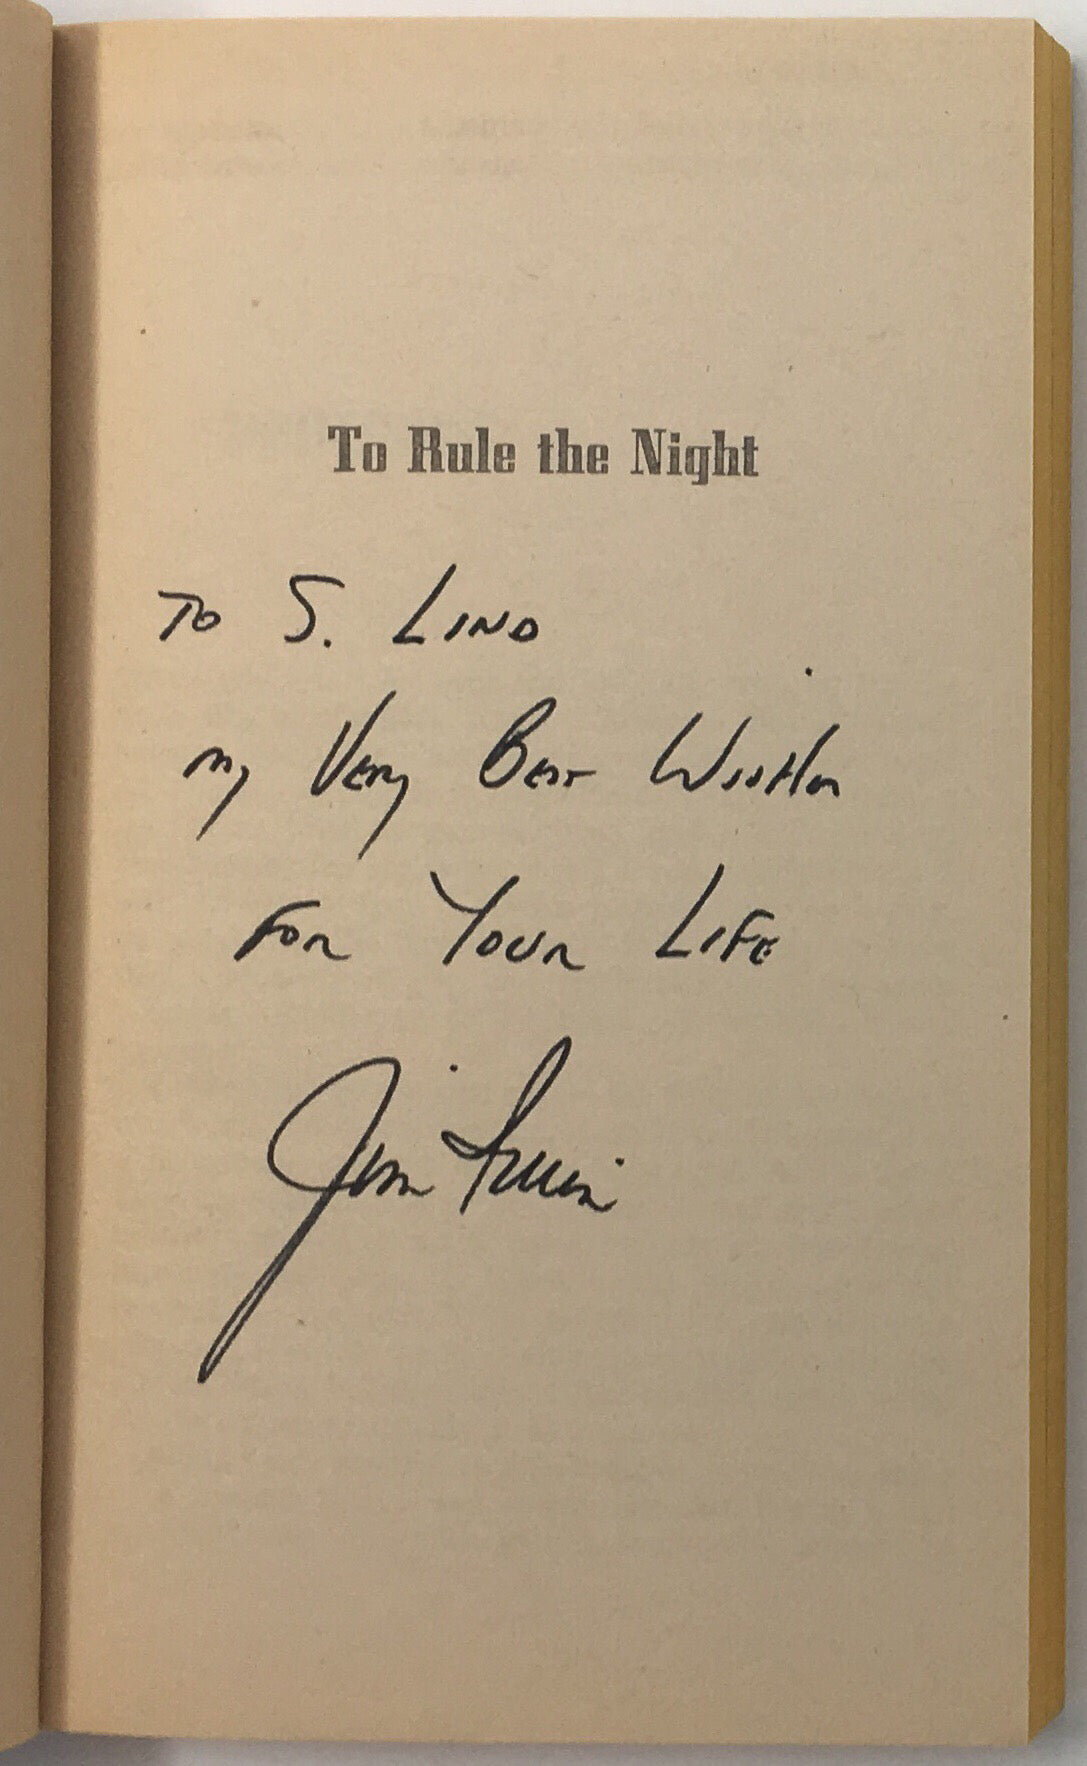 To Rule the Night
TO S. LIND
my Very Best Wishes
FOR YOUR LIFE
Jim Irwin